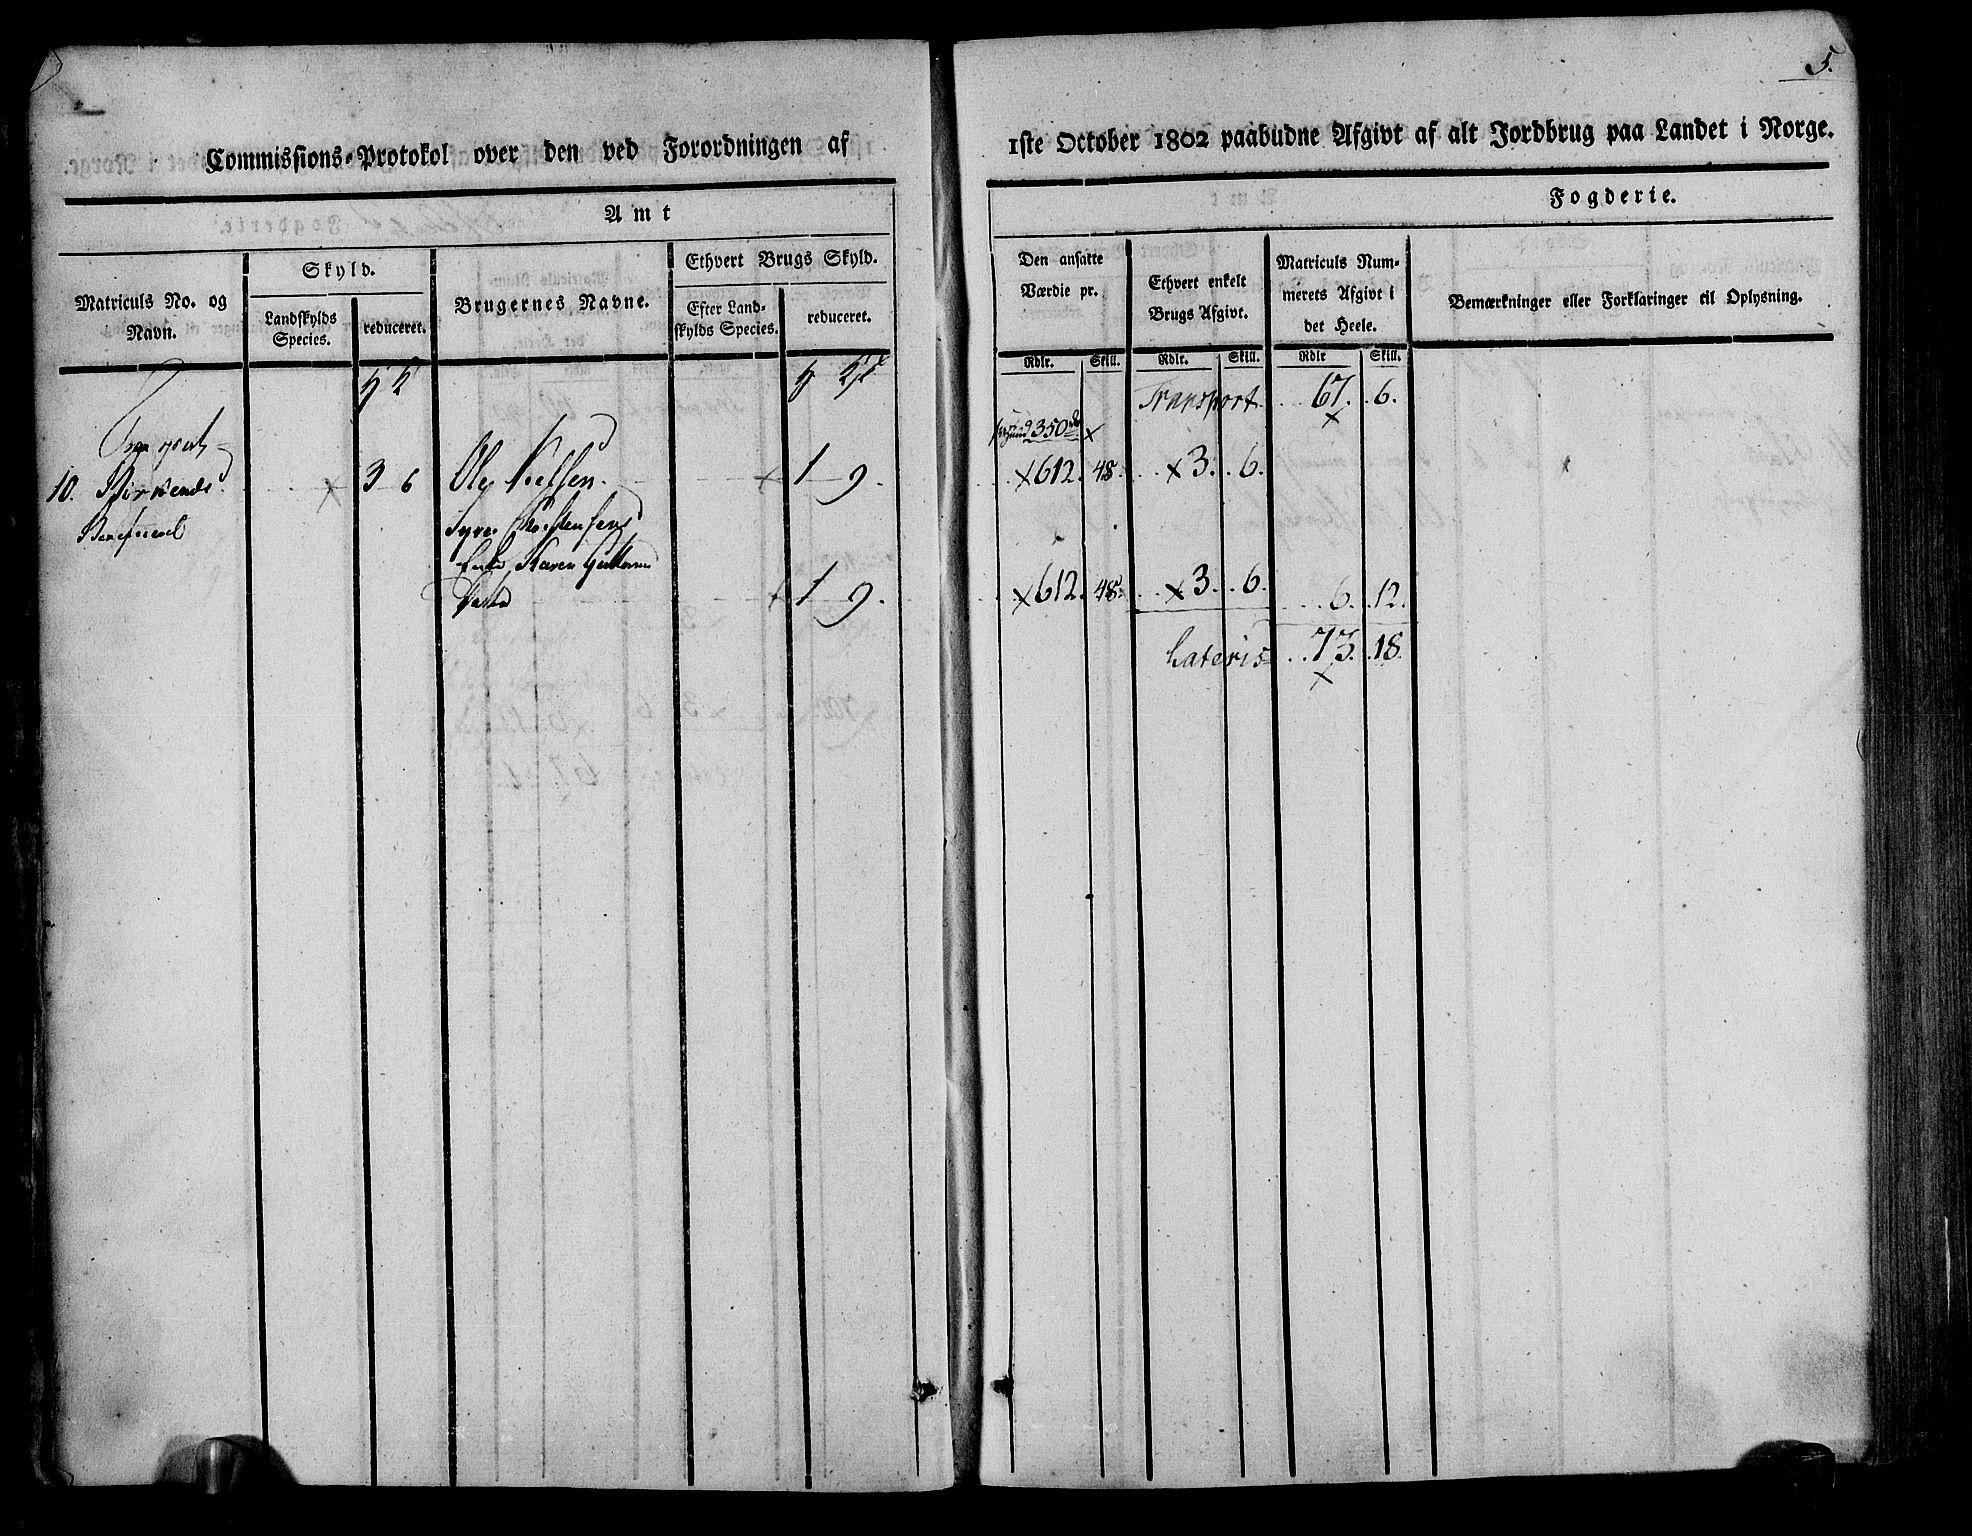 5.
Commissions-Protokol over den ved Forordningen af 1ste October 1802 paabudne Afgivt af alt Jordbrug paa Landet i Norge.
Amt
Fogderie.
Matriculs No. og Navn.
Skyld.
Landskylds Species.
reduceret.
Brugernes Navne.
Ethvert Brugs Skyld.
Efter Landskylds Species.
reduceret.
Den ansatte Værdie pr.
Ethvert enkelt Brugs Afgivt.
Matriculs Nummerets Afgivt i det Heele.
Bemærkninger eller Forklaringer til Oplysning.
Rdlr. Skill. Rdlr. Skill. Rdlr Skill.
Transport 67. 6.
Transport
350
10. 3 6 Ole 1 9. 612. 48. 3. 6.
Beneficeret
Karen
1 9. 612. 48. 3. 6. 6. 12.
Lateris 73. 18.